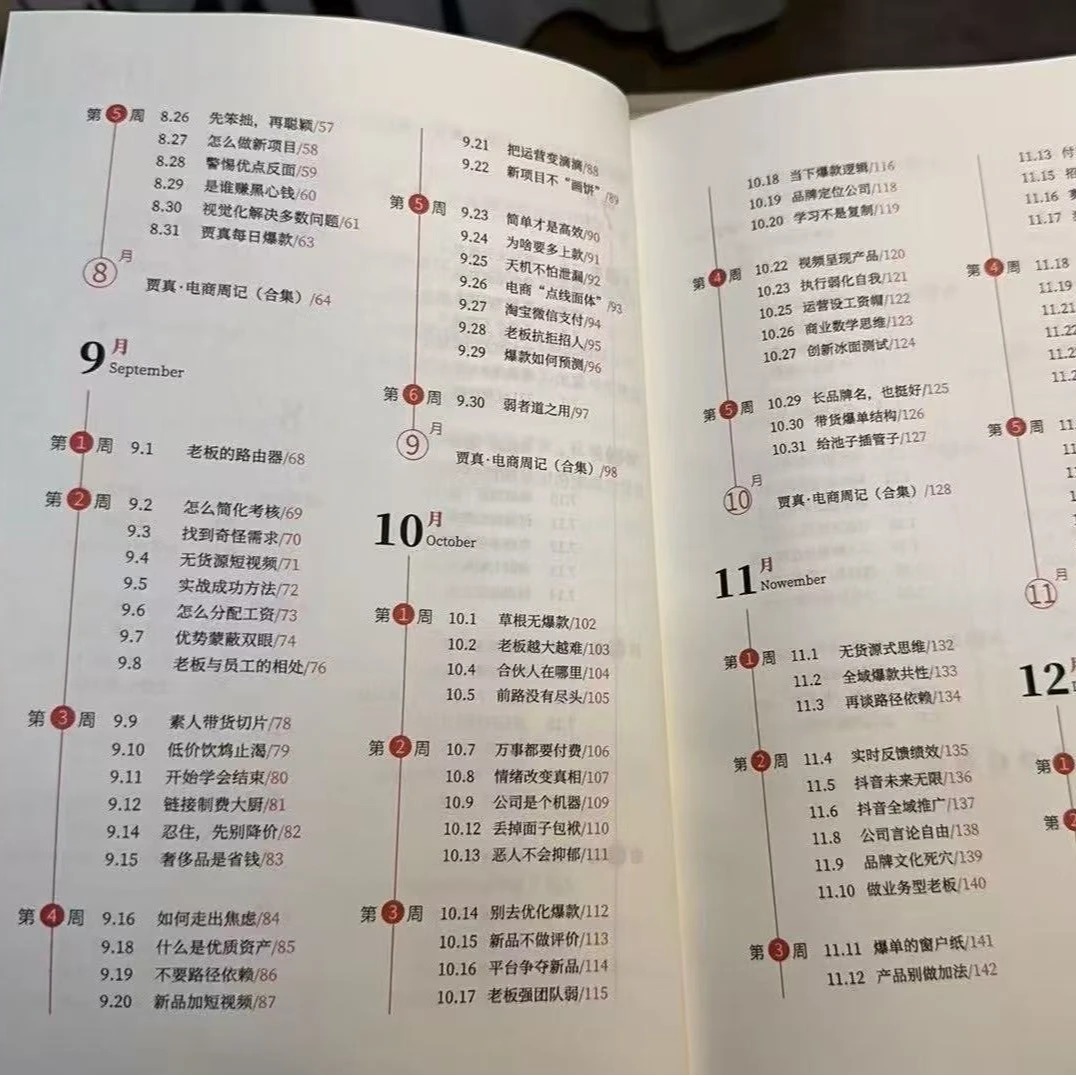 第5周 8.26 先笨拙，再聪颖/57
8.27 怎么做新项目/58
8.28 警惕优点反面/59
8.29 是谁赚黑心钱/60
8.30 视觉化解决多数问题/61
8.31 贾真每日爆款/63
8月
贾真·电商周记（合集）/64
9月
September
第1周 9.1 老板的路由器/68
第2周 9.2 怎么简化考核/69
9.3 找到奇怪需求/70
9.4 无货源短视频/71
9.5 实战成功方法/72
9.6 怎么分配工资/73
9.7 优势蒙蔽双眼/74
9.8 老板与员工的相处/76
第3周 9.9 素人带货切片/78
9.10 低价饮鸩止渴/79
9.11 开始学会结束/80
9.12 链接制费大厨/81
9.14 忍住，先别降价/82
9.15 奢侈品是省钱/83
第4周 9.16 如何走出焦虑/84
9.18 什么是优质资产/85
9.19 不要路径依赖/86
9.20 新品加短视频/87
9.21 把运营变滴滴/88
9.22 新项目不“画饼”/89
第5周 9.23 简单才是高效/90
9.24 为啥要多上款/91
9.25 天机不怕泄漏/92
9.26 电商“点线面体”/93
9.27 淘宝微信支付/94
9.28 老板抗拒招人/95
9.29 爆款如何预测/96
第6周 9.30 弱者道之用/97
9月
贾真·电商周记（合集）/98
10月
October
第1周 10.1 草根无爆款/102
10.2 老板越大越难/103
10.4 合伙人在哪里/104
10.5 前路没有尽头/105
第2周 10.7 万事都要付费/106
10.8 情绪改变真相/107
10.9 公司是个机器/109
10.12 丢掉面子包袱/110
10.13 恶人不会抑郁/111
第3周 10.14 别去优化爆款/112
10.15 新品不做评价/113
10.16 平台争夺新品/114
10.17 老板强团队弱/115
10.18 当下爆款逻辑/116
10.19 品牌定位公司/118
10.20 学习不是复制/119
第4周 10.22 视频呈现产品/120
10.23 执行弱化自我/121
10.25 运营设工资帽/122
10.26 商业数学思维/123
10.27 创新冰面测试/124
第5周 10.29 长品牌名，也挺好/125
10.30 带货爆单结构/126
10.31 给池子插管子/127
10月
贾真·电商周记（合集）/128
11月
Nowember
第1周 11.1 无货源式思维/132
11.2 全域爆款共性/133
11.3 再谈路径依赖/134
第2周 11.4 实时反馈绩效/135
11.5 抖音未来无限/136
11.6 抖音全域推广/137
11.8 公司言论自由/138
11.9 品牌文化死穴/139
11.10 做业务型老板/140
第3周 11.11 爆单的窗户纸/141
11.12 产品别做加法/142
11.13 付
11.15 招
11.16
11.17
第4周 11.18
11.19
11.21
11.22
11.2
11.2
第5周 11.
11
11
11月
12月
第1
第2